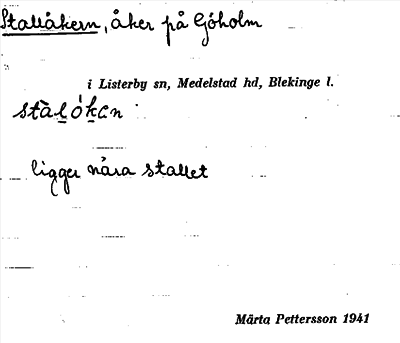 Stallåkern, åker på Göholm
i Listerby sn, Medelstad hd, Blekinge l.
ligger nära stallet
Märta Pettersson 1941